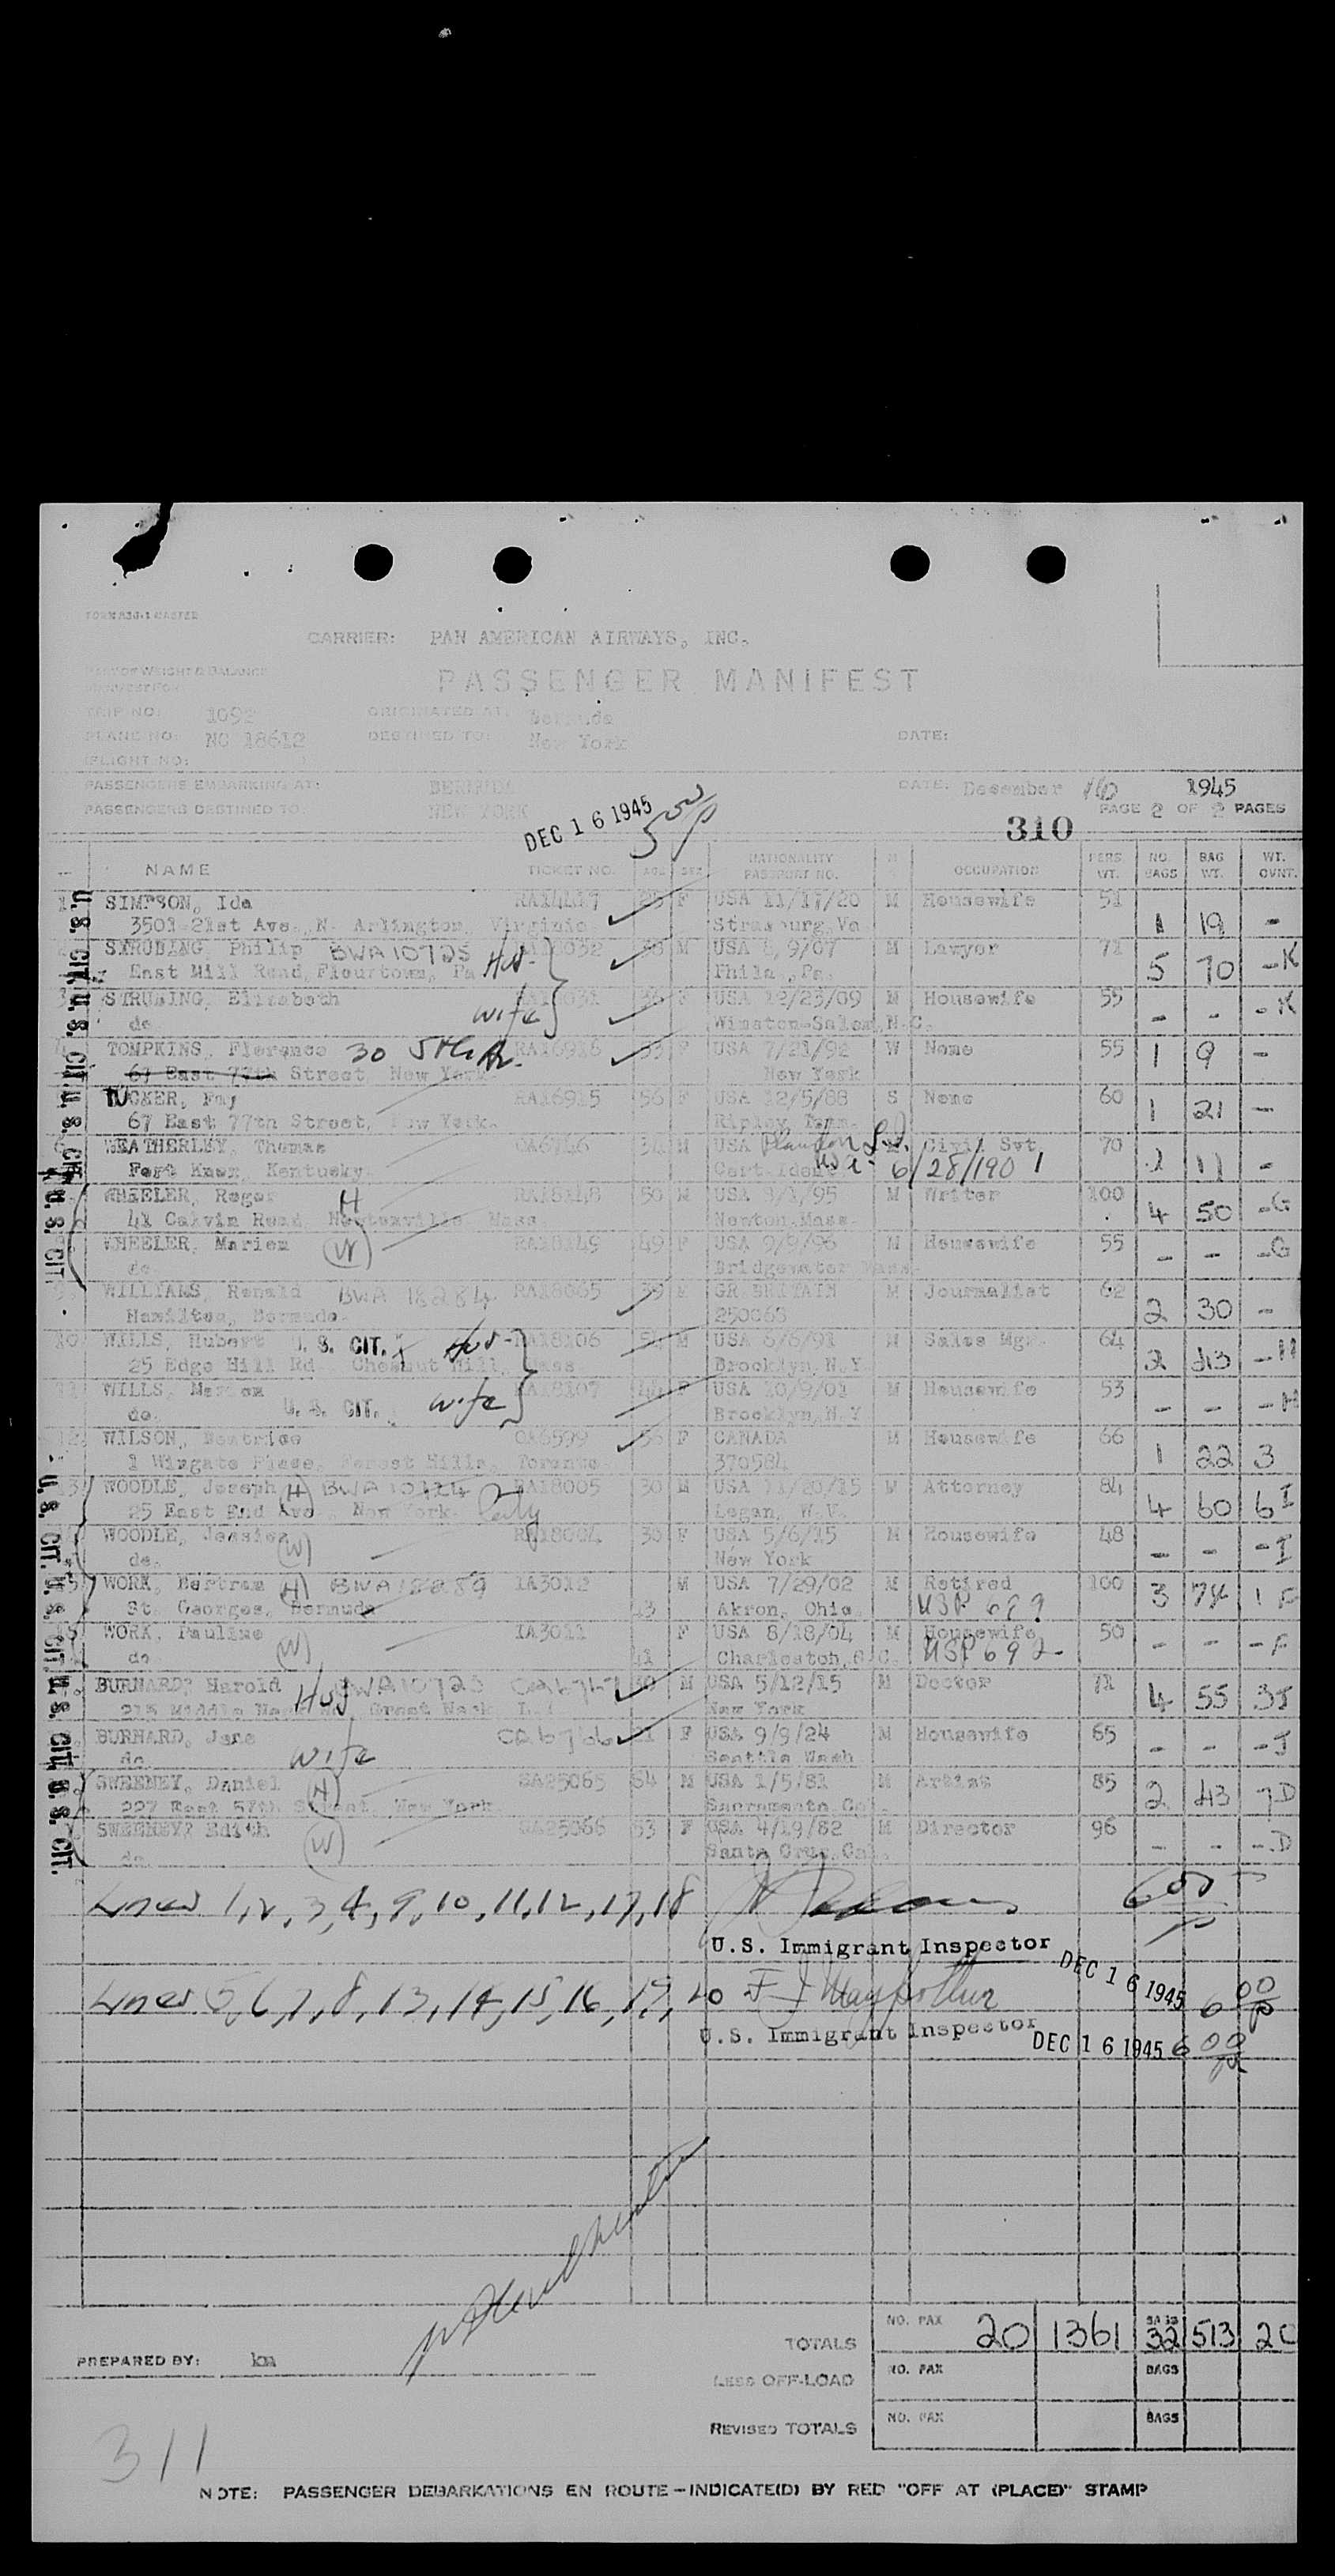 FORM 830-1 MASTER
CARRIER: PAN AMERICAN AIRWAYS, INC.
PART OF WEIGHT & BALANCE
MANIFEST FOR:
PASSENGER MANIFEST
TRIP NO: 1092 ORIGINATED AT: Bermuda
PLANE NO: NC 18612 DESTINED TO: New York DATE:
FLIGHT NO:
PASSENGERS EMBARKING AT: BERMUDA DATE: December 16 1945
PASSENGERS DESTINED TO: NEW YORK PAGE 2 OF 2 PAGES
DEC 16 1945 5 50 P
310
NAME TICKET NO. AGE SEX NATIONALITY PASSPORT NO. M OCCUPATION PERS. WT. NO. BAGS BAG WT. WT. OVNT.
1 SIMPSON, Ida RA14417 25 F USA 11/17/20 M Housewife 51
3501-21st Ave., N. Arlington, Virginia. Strasburg, Va 1 19 -
STRUBING, Philip BWA10725 Hus- 38 M USA 9/07 M Lawyer 71
East Mill Road, Flourtown, Pa Phila., Pa. 5 70 -K
STRUBING, Elizabeth RA18031 36 F USA 12/23/09 M Housewife 55
do. wife Winston-Salem, N.C. - - -K
TOMPKINS, Florence 30 5th Av. RA16916 53 F USA 7/21/92 W None 55 1 9 -
67 East 77th Street, New York. New York
TUCKER, Fay RA16915 56 F USA 12/5/88 S None 60
67 East 77th Street, New York. Ripley, Tenn. 1 21 -
6 WEATHERLEY, Thomas CA6746 34 M USA Civil Svt. 70
Fort Knox, Kentucky. Cert. Iden. 6/28/1901 11 -
WHEELER, Roger H RA18148 50 M USA 1/1/95 M Writer 100
41 Calvin Road, Newtonville, Mass. Newton, Mass. 4 50 -G
WHEELER, Marion (W) RA18149 49 F USA 9/9/96 M Housewife 55
do. Bridgewater, Mass. - - -G
9 WILLIAMS, Ronald BWA 18284 RA18065 39 M GR. BRITAIN M Journalist 62
Hamilton, Bermuda. 250063 2 30 -
10 WILLS, Hubert U. S. CIT. Hus- RA18106 54 M USA 6/6/91 M Sales Mgr. 64
25 Edge Hill Rd Chestnut Hill, Mass Brooklyn, N.Y. 2 43 -H
11 WILLS, Marion RA18107 44 F USA 10/9/01 M Housewife 53
do. U. S. CIT. wife Brooklyn, N.Y - - -H
12 WILSON, Beatrice CA6599 56 F CANADA M Housewife 66
1 Wingate Place, Forest Hills, Toronto 370584 1 22 3
13 WOODLE, Joseph (H) RA18005 30 M USA 11/20/15 M Attorney 84
25 East End Ave. New York City Logan, W.V. 4 60 6 I
WOODLE, Jessica (W) RA18004 30 F USA 5/6/15 M Housewife 48
do. New York - - -I
15 WORK, Bertram (H) BWA18289 IA3012 43 M USA 7/29/02 M Retired 100
St. Georges, Bermuda Akron, Ohio. USP 699 3 74 1 F
WORK, Pauline (W) IA3011 41 F USA 8/18/04 M Housewife 50
do. Charleston, S.C. USP 692 - - -F
BURHARD, Harold Hus BWA10723 CA6767 30 M USA 5/12/15 M Doctor 71
215 Middle Neck Rd., Great Neck L.I. New York 4 55 3J
BURHARD, Jane CA6766 21 F USA 9/9/24 M Housewife 65
do. wife Seattle Wash - - -J
SWEENEY, Daniel (H) RA25065 64 M USA 1/5/81 M Artist 85
227 East 57th Street, New York Sacramento, Cal. 2 43 7D
SWEENEY, Edith (W) RA25066 63 F USA 4/19/82 M Director 96
do. Santa Cruz, Cal. - - -D
U. S. CIT.
U. S. CIT.
U. S. CIT.
U. S. CIT.
U. S. CIT.
U. S. CIT.
U. S. CIT.
U. S. CIT.
Lines 1, 2, 3, 4, 9, 10, 11, 12, 17, 18 6 00 P
U.S. Immigrant Inspector DEC 16 1945
Lines 5, 6, 7, 8, 13, 14, 15, 16, 19, 20 6 00 P
U.S. Immigrant Inspector DEC 16 1945 6 00
TOTALS NO. PAX 20 1361 BAGS 32 513 20
PREPARED BY: km
LESS OFF-LOAD NO. PAX BAGS
REVISED TOTALS NO. PAX BAGS
311
NOTE: PASSENGER DEBARKATIONS EN ROUTE—INDICATE(D) BY RED "OFF AT (PLACE)" STAMP